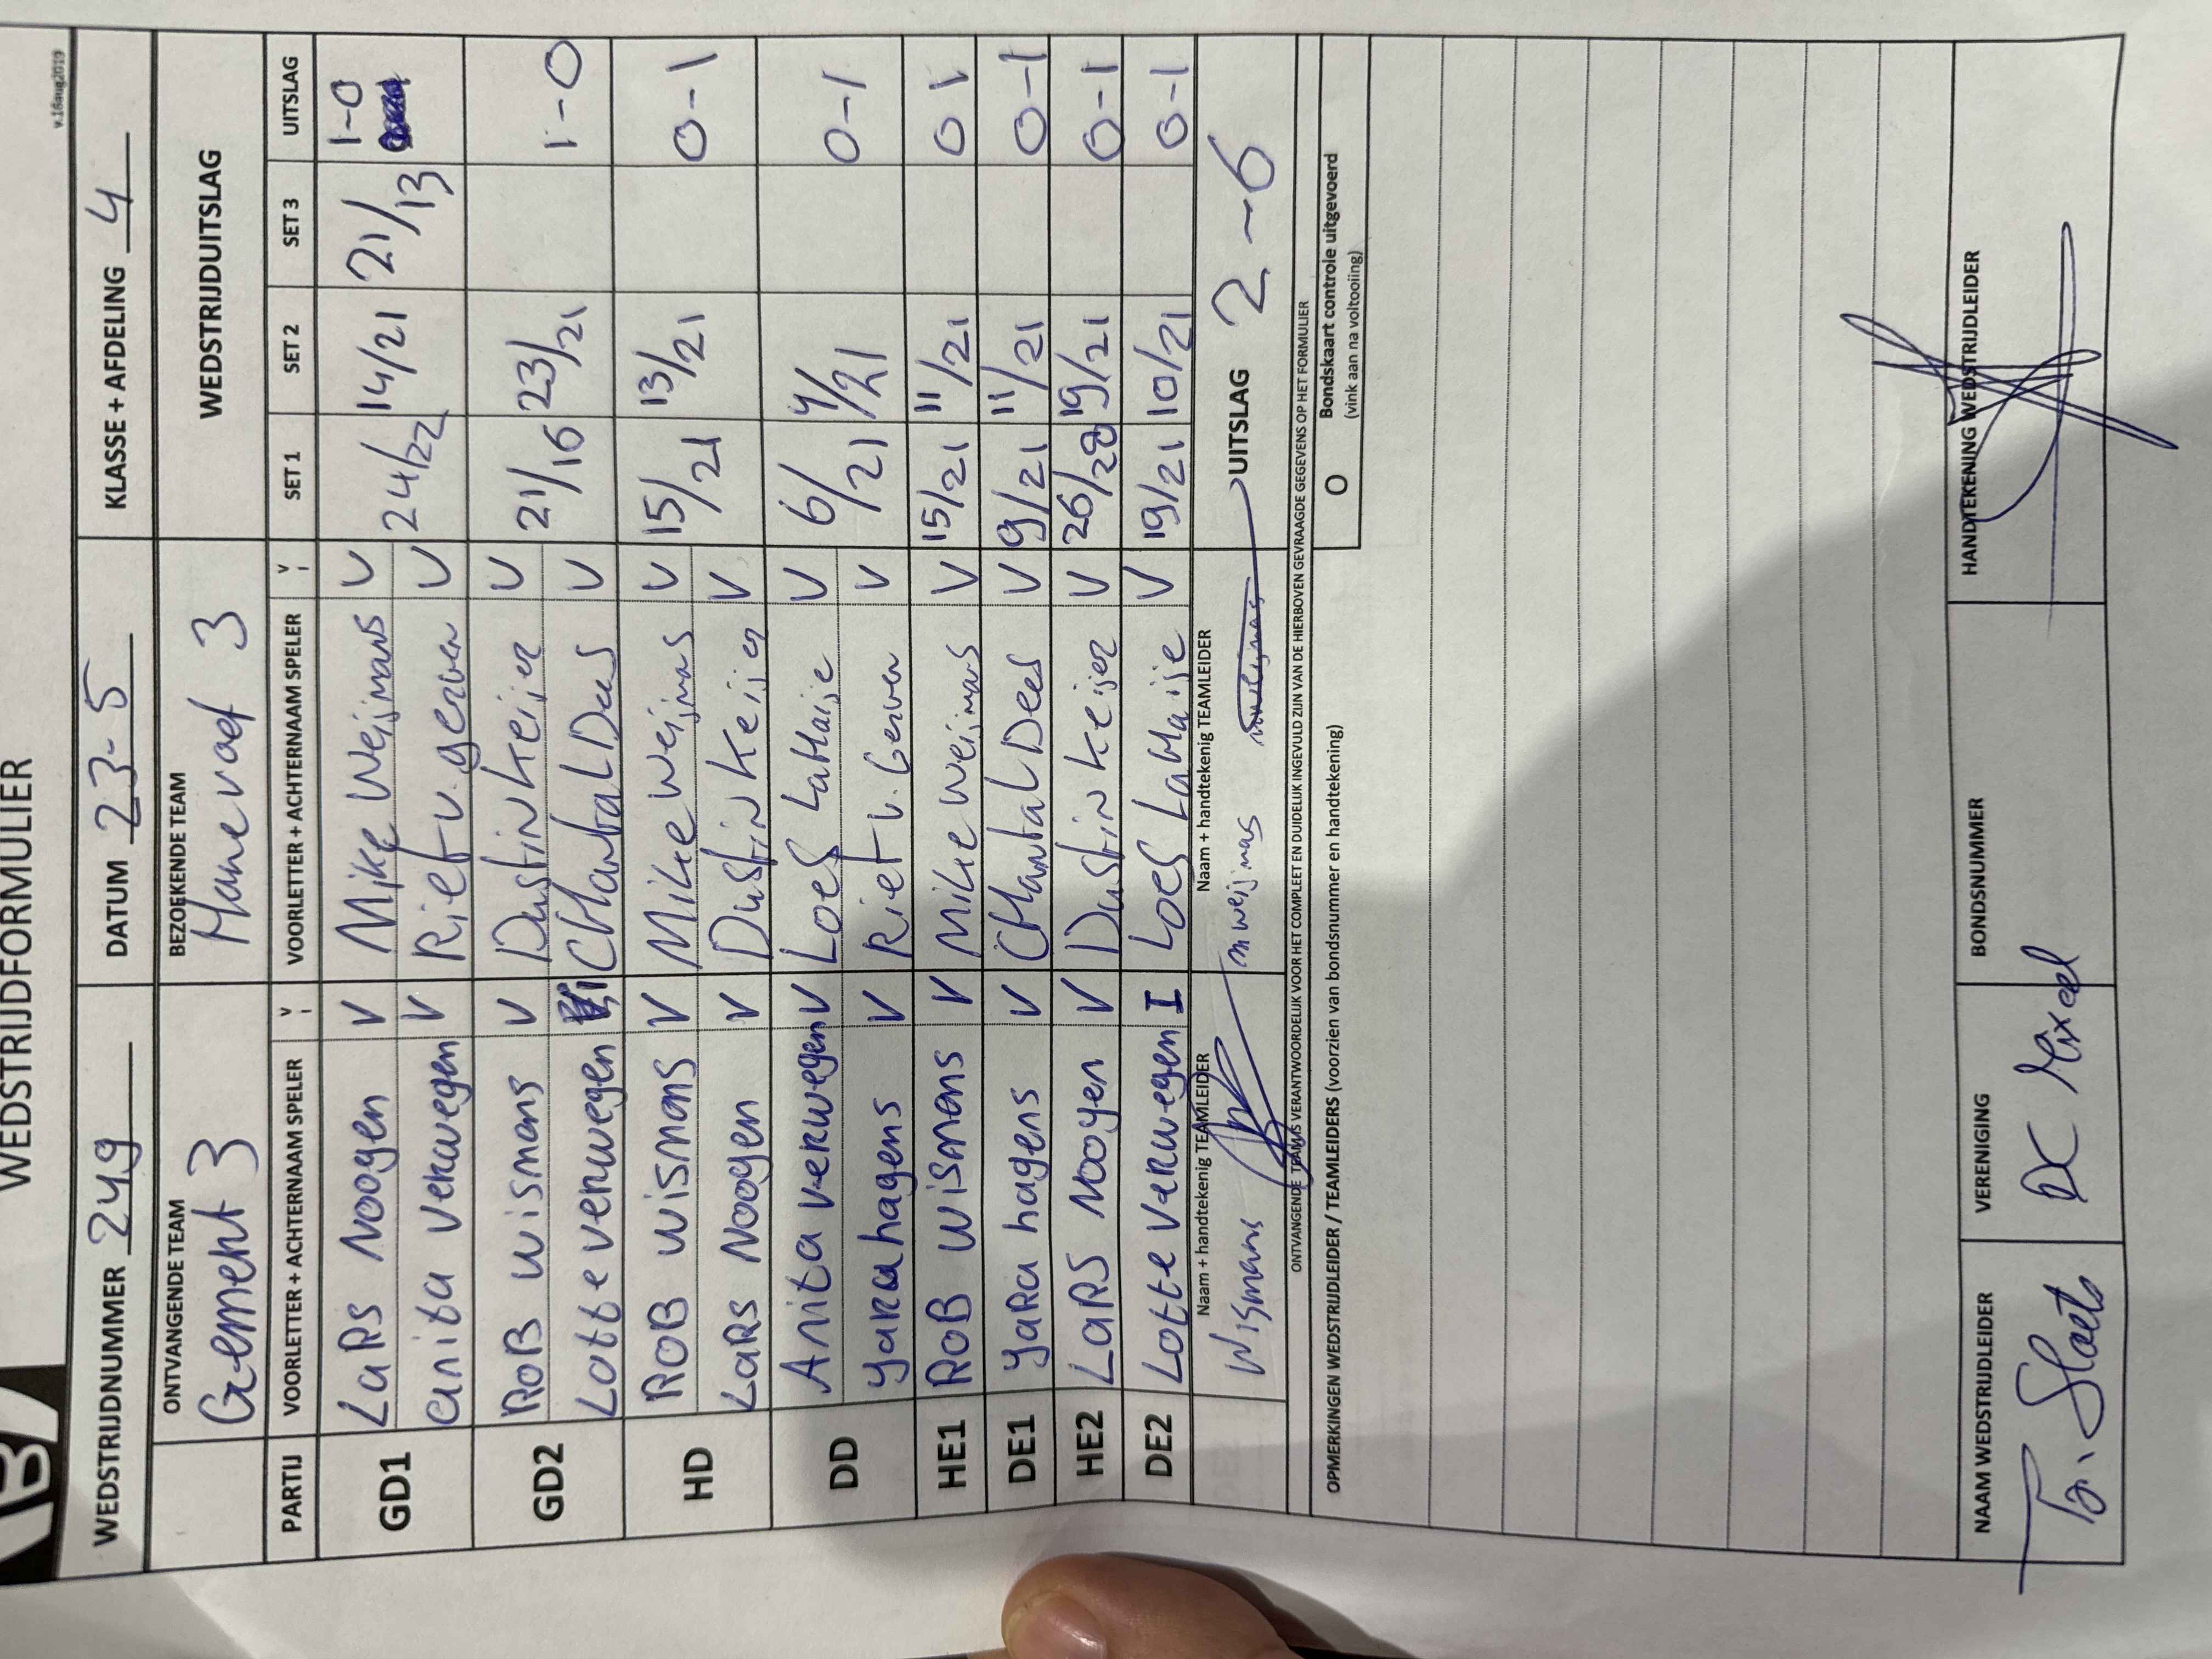 WEDSTRIJDFORMULIER
v.16aug2019
WEDSTRIJDNUMMER 249 DATUM 23-5 KLASSE + AFDELING 4
ONTVANGENDE TEAM BEZOEKENDE TEAM WEDSTRIJDUITSLAG
Gement 3
PARTIJ VOORLETTER + ACHTERNAAM SPELER V I VOORLETTER + ACHTERNAAM SPELER V I SET 1 SET 2 SET 3 UITSLAG
GD1 LaRS Nooyen V Mike Weijmans V 24/22 14/21 21/13 1-0
anita verwegen V Riet v. gerven V
GD2 ROB wismans V Dustin Keijer V 21/16 23/21 1-0
Lotte verwegen CHantaL Dees V
HD ROB wismans V Mike weijmas V 15/21 13/21 0-1
LaRS Nooyen V Dustin Keijer V
DD Anita verwegen V Loes LaHaije V 6/21 4/21 0-1
yara hagens V Riet v. Gerven V
HE1 ROB wismans V Mike weijmans V 15/21 11/21 0 1
DE1 yaRa hagens V CHantaL Dees V 9/21 11/21 0-1
HE2 LaRS Nooyen V Dustin Keijer V 26/28 19/21 0-1
DE2 Lotte verwegen I Loes LaHaije V 19/21 10/21 0-1
Naam + handtekenig TEAMLEIDER Naam + handtekenig TEAMLEIDER
Wismans m weijmas UITSLAG 2-6
ONTVANGENDE TEAMS VERANTWOORDELIJK VOOR HET COMPLEET EN DUIDELIJK INGEVULD ZIJN VAN DE HIERBOVEN GEVRAAGDE GEGEVENS OP HET FORMULIER
OPMERKINGEN WEDSTRIJDLEIDER / TEAMLEIDERS (voorzien van bondsnummer en handtekening)
O Bondskaart controle uitgevoerd
(vink aan na voltooiing)
NAAM WEDSTRIJDLEIDER VERENIGING BONDSNUMMER HANDTEKENING WEDSTRIJDLEIDER